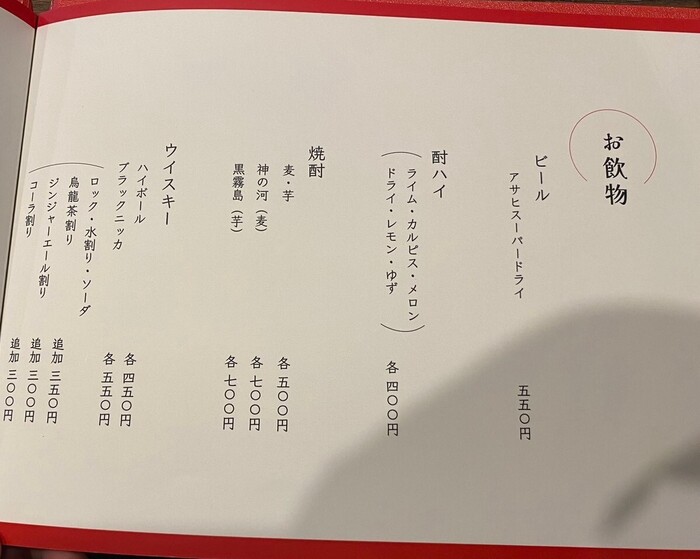 お飲物
ビール
アサヒスーパードライ 五五〇円
酎ハイ
(ライム・カルピス・メロン
ドライ・レモン・ゆず) 各 四〇〇円
焼酎
麦・芋 各 五〇〇円
神の河(麦) 各 七〇〇円
黒霧島(芋) 各 七〇〇円
ウイスキー
ハイボール 各 四五〇円
ブラックニッカ 各 五五〇円
(ロック・水割り・ソーダ
烏龍茶割り 追加 三五〇円
ジンジャーエール割り 追加 三〇〇円
コーラ割り 追加 三〇〇円